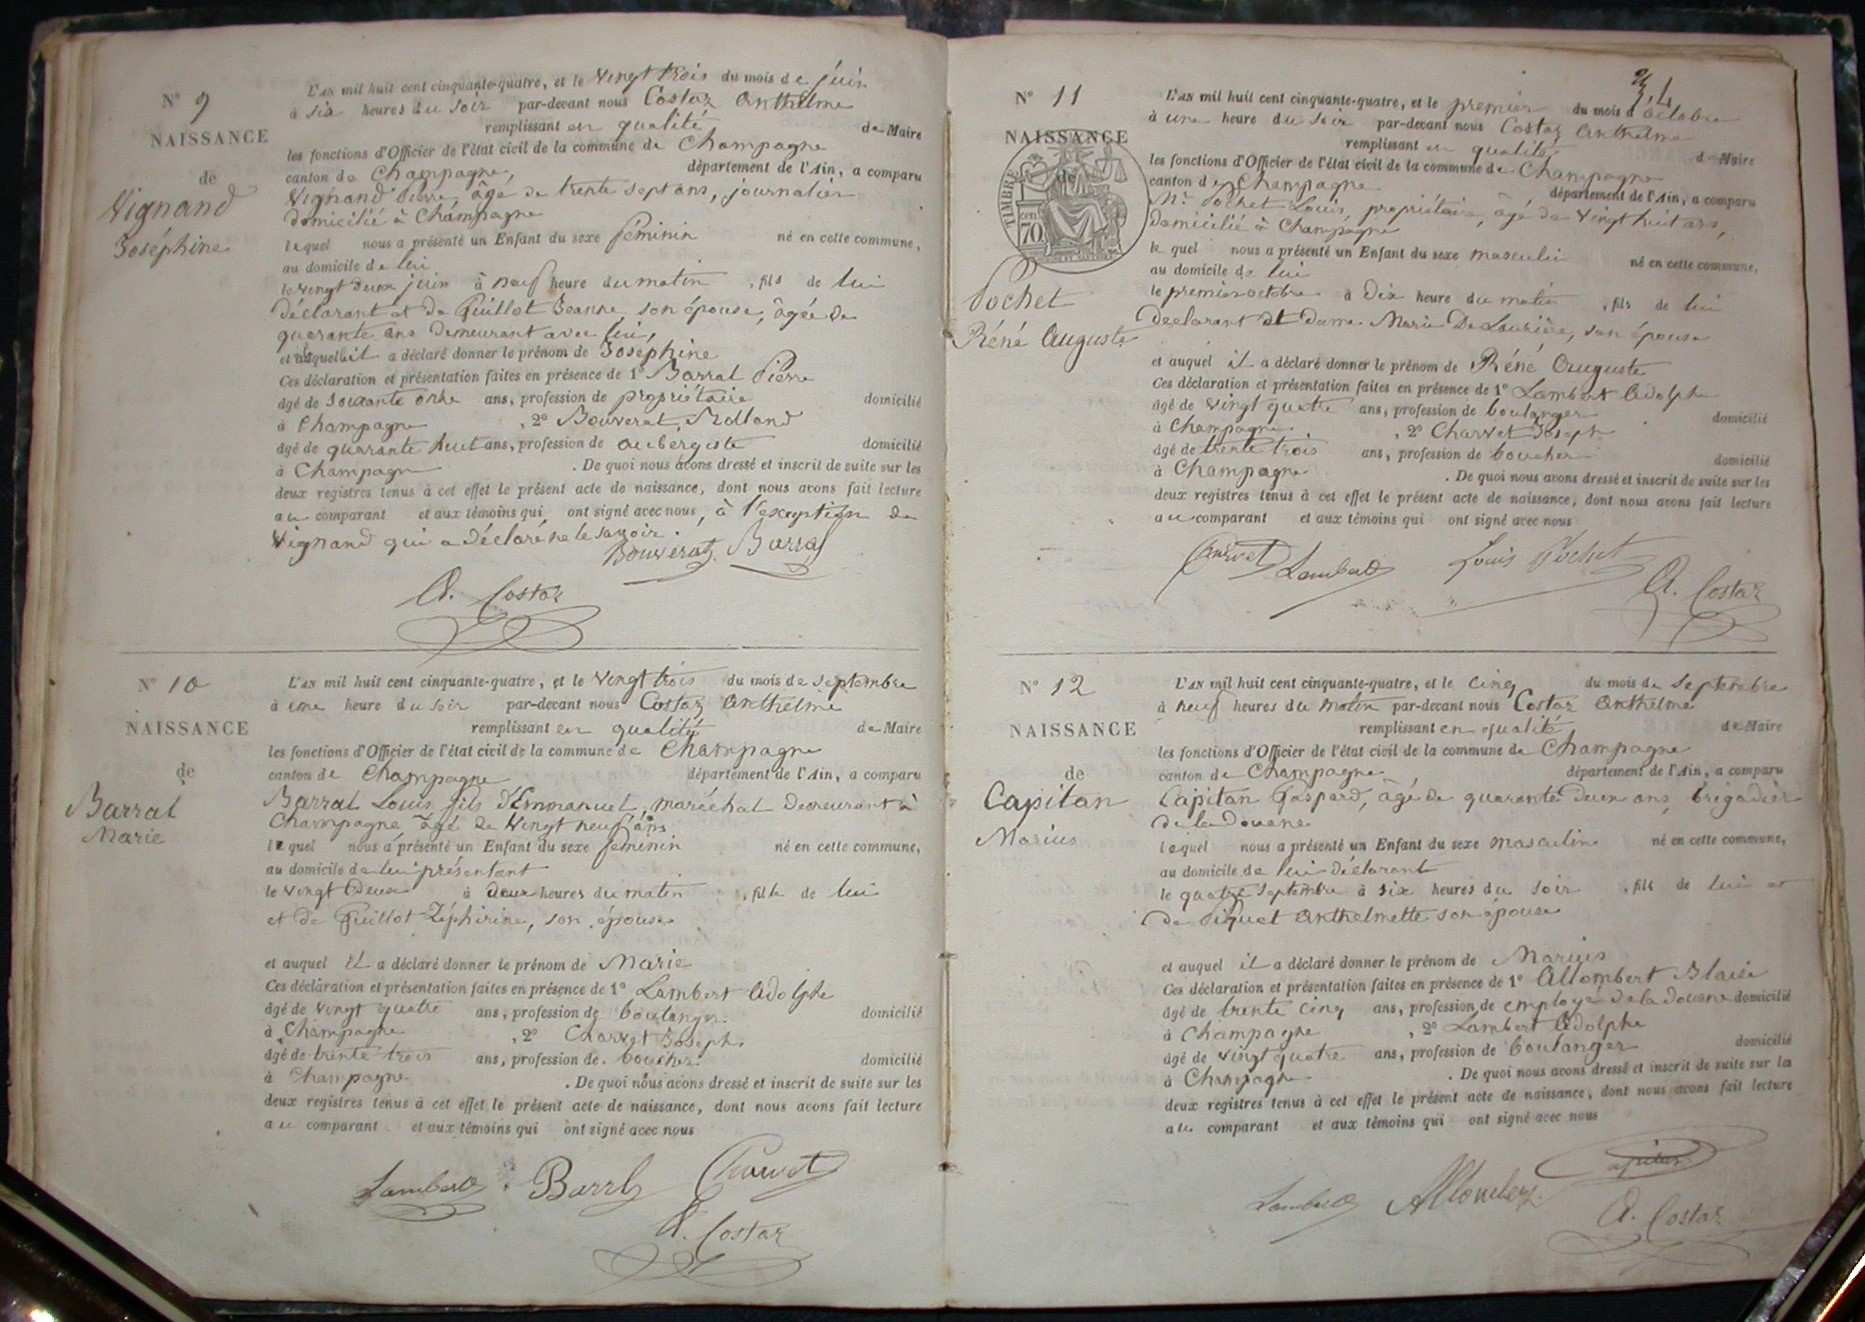 N° 9
NAISSANCE
de
Vignand
Joséphine
L'AN mil huit cent cinquante-quatre, et le vingt trois du mois de juin
à six heures du soir par-devant nous Costaz Anthelme
remplissant en qualité de Maire
les fonctions d'Officier de l'état civil de la commune de Champagne
canton de Champagne, département de l'Ain, a comparu
Vignand Pierre, âgé de trente sept ans, journalier
domicilié à Champagne
lequel nous a présenté un Enfant du sexe féminin né en cette commune,
au domicile de lui
le vingt deux juin à neuf heure du matin , fils de lui
déclarant et de Guillot Jeanne, son épouse, âgée de
quarante ans demeurant avec lui,
et auquel il a déclaré donner le prénom de Joséphine
Ces déclaration et présentation faites en présence de 1° Barral Pierre
âgé de soixante onze ans, profession de propriétaire domicilié
à Champagne , 2° Bouverat Rolland
âgé de quarante huit ans, profession de aubergiste domicilié
à Champagne . De quoi nous avons dressé et inscrit de suite sur les
deux registres tenus à cet effet le présent acte de naissance, dont nous avons fait lecture
au comparant et aux témoins qui ont signé avec nous, à l'exception de
Vignand qui a déclaré ne le savoir.
Bouverat Barral
A. Costaz
N° 10
NAISSANCE
de
Barral
Marie
L'AN mil huit cent cinquante-quatre, et le vingt trois du mois de septembre
à une heure du soir par-devant nous Costaz Anthelme
remplissant en qualité de Maire
les fonctions d'Officier de l'état civil de la commune de Champagne
canton de Champagne département de l'Ain, a comparu
Barral Louis fils d'Emmanuel, maréchal demeurant à
Champagne âgé de vingt neuf ans
lequel nous a présenté un Enfant du sexe féminin né en cette commune,
au domicile de lui présentant
le vingt deux à deux heures du matin , fille de lui
et de Guillot Zéphirine, son épouse
et auquel il a déclaré donner le prénom de Marie
Ces déclaration et présentation faites en présence de 1° Lambert Adolphe
âgé de vingt quatre ans, profession de boulanger domicilié
à Champagne , 2° Charvet Joseph
âgé de trente trois ans, profession de boucher domicilié
à Champagne . De quoi nous avons dressé et inscrit de suite sur les
deux registres tenus à cet effet le présent acte de naissance, dont nous avons fait lecture
au comparant et aux témoins qui ont signé avec nous
Lambert Barral Charvet
A. Costaz
N° 11
NAISSANCE
de
TIMBRE
70
Pochet
Réné Auguste
L'AN mil huit cent cinquante-quatre, et le premier du mois d'octobre
à une heure du soir par-devant nous Costaz Anthelme
remplissant en qualité de Maire
les fonctions d'Officier de l'état civil de la commune de Champagne
canton de Champagne département de l'Ain, a comparu
Mr Pochet Louis, propriétaire, âgé de vingt huit ans,
domicilié à Champagne
lequel nous a présenté un Enfant du sexe masculin né en cette commune,
au domicile de lui
le premier octobre à dix heure du matin , fils de lui
déclarant et dame Marie De Laurière, son épouse
et auquel il a déclaré donner le prénom de Réné Auguste
Ces déclaration et présentation faites en présence de 1° Lambert Adolphe
âgé de vingt quatre ans, profession de boulanger domicilié
à Champagne , 2° Charvet Joseph
âgé de trente trois ans, profession de boucher domicilié
à Champagne . De quoi nous avons dressé et inscrit de suite sur les
deux registres tenus à cet effet le présent acte de naissance, dont nous avons fait lecture
au comparant et aux témoins qui ont signé avec nous
Charvet Lambert Louis Pochet
A. Costaz
N° 12
NAISSANCE
de
Capitan
Marius
L'AN mil huit cent cinquante-quatre, et le cinq du mois de septembre
à neuf heures du matin par-devant nous Costaz Anthelme
remplissant en qualité de Maire
les fonctions d'Officier de l'état civil de la commune de Champagne
canton de Champagne département de l'Ain, a comparu
Capitan Gaspard, âgé de quarante deux ans, brigadier
de la douane
lequel nous a présenté un Enfant du sexe masculin né en cette commune,
au domicile de lui déclarant
le quatre septembre à six heures du soir , fils de lui et
de Piquet Anthelmette son épouse
et auquel il a déclaré donner le prénom de Marius
Ces déclaration et présentation faites en présence de 1° Allombert Blaise
âgé de trente cinq ans, profession de employé de la douane domicilié
à Champagne , 2° Lambert Adolphe
âgé de vingt quatre ans, profession de boulanger domicilié
à Champagne . De quoi nous avons dressé et inscrit de suite sur les
deux registres tenus à cet effet le présent acte de naissance, dont nous avons fait lecture
au comparant et aux témoins qui ont signé avec nous
Capitan
Lambert Allombert
A. Costaz